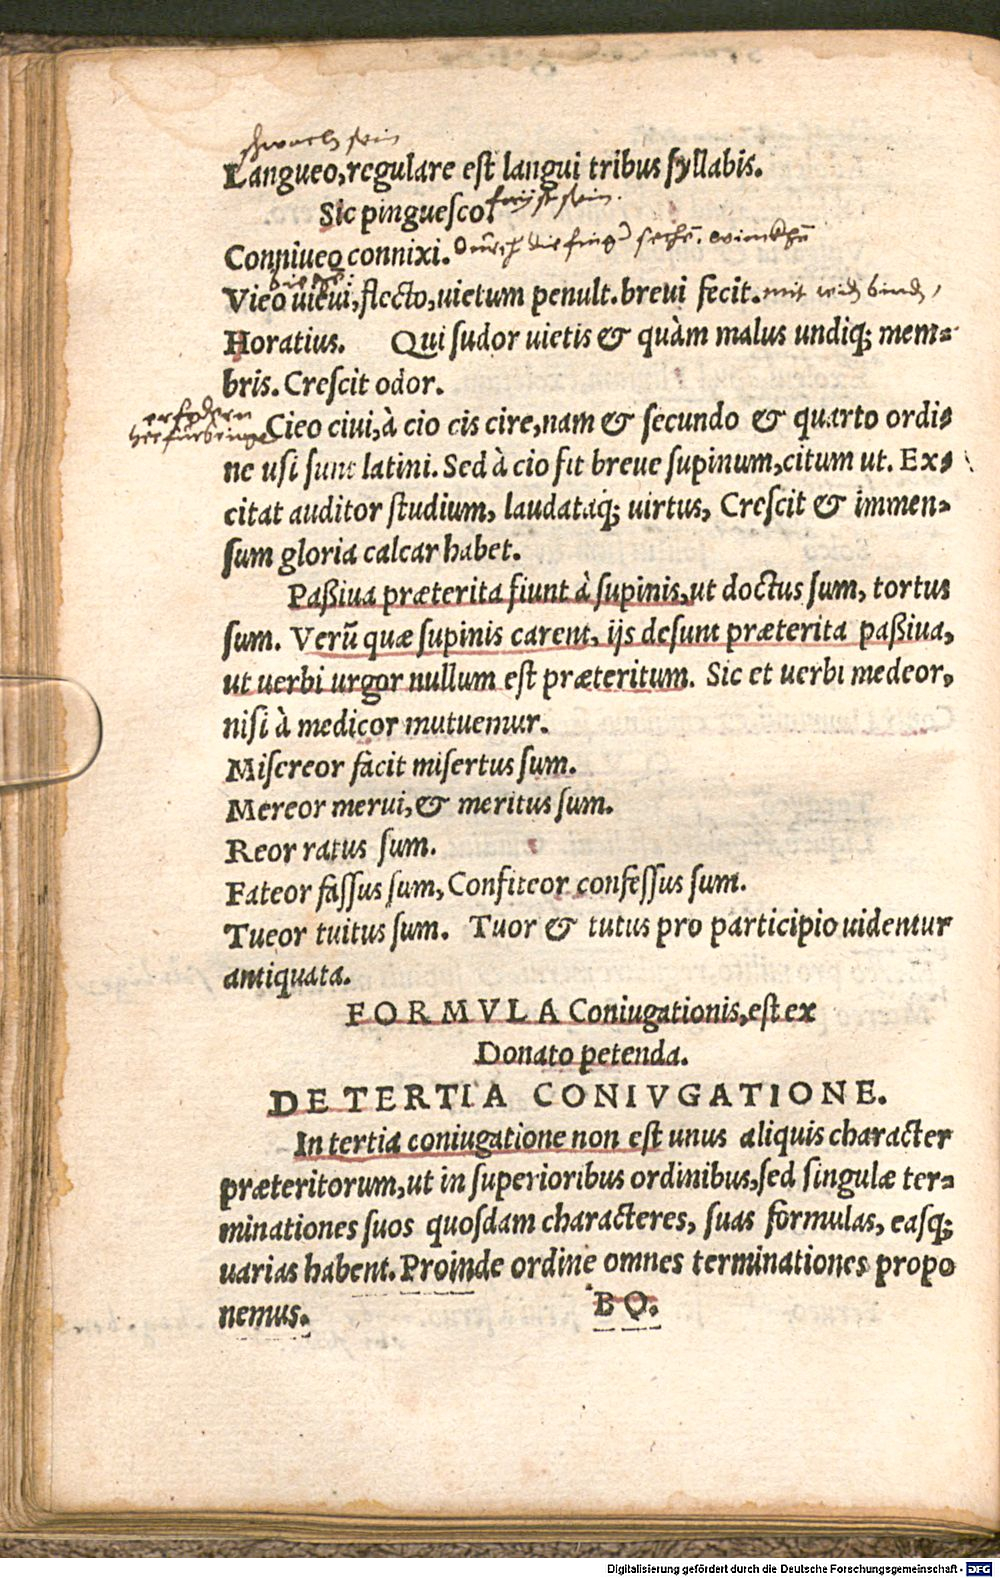 schwach sein
Langueo, regulare est langui tribus syllabis.
Sic pinguesco. feyst sein.
Conniueo connixi. durch die fing sechen, winckhen
Vieo uieui, flecto, uietum penult. breui fecit. mit wid binden
Horatius. Qui sudor uietis & quàm malus undiq; mem-
bris. Crescit odor.
erfodern
herfürbringen Cieo ciui, à cio cis cire, nam & secundo & quarto ordi-
ne usi sunt latini. Sed à cio fit breue supinum, citum ut. Ex-
citat auditor studium, laudataq; uirtus, Crescit & immen-
sum gloria calcar habet.
Paßiua præterita fiunt à supinis, ut doctus sum, tortus
sum. Verũ quæ supinis carent, ijs desunt præterita paßiua,
ut uerbi urgor nullum est præteritum. Sic et uerbi medeor,
nisi à medicor mutuemur.
Miscreor facit misertus sum.
Mereor merui, & meritus sum.
Reor ratus sum.
Fateor fassus sum, Confiteor confessus sum.
Tueor tuitus sum. Tuor & tutus pro participio uidentur
antiquata.
FORMVLA Coniugationis, est ex
Donato petenda.
DE TERTIA CONIVGATIONE.
In tertia coniugatione non est unus aliquis character
præteritorum, ut in superioribus ordinibus, sed singulæ ter-
minationes suos quosdam characteres, suas formulas, easq;
uarias habent. Proinde ordine omnes terminationes propo
nemus. BO.
Digitalisierung gefördert durch die Deutsche Forschungsgemeinschaft - DFG